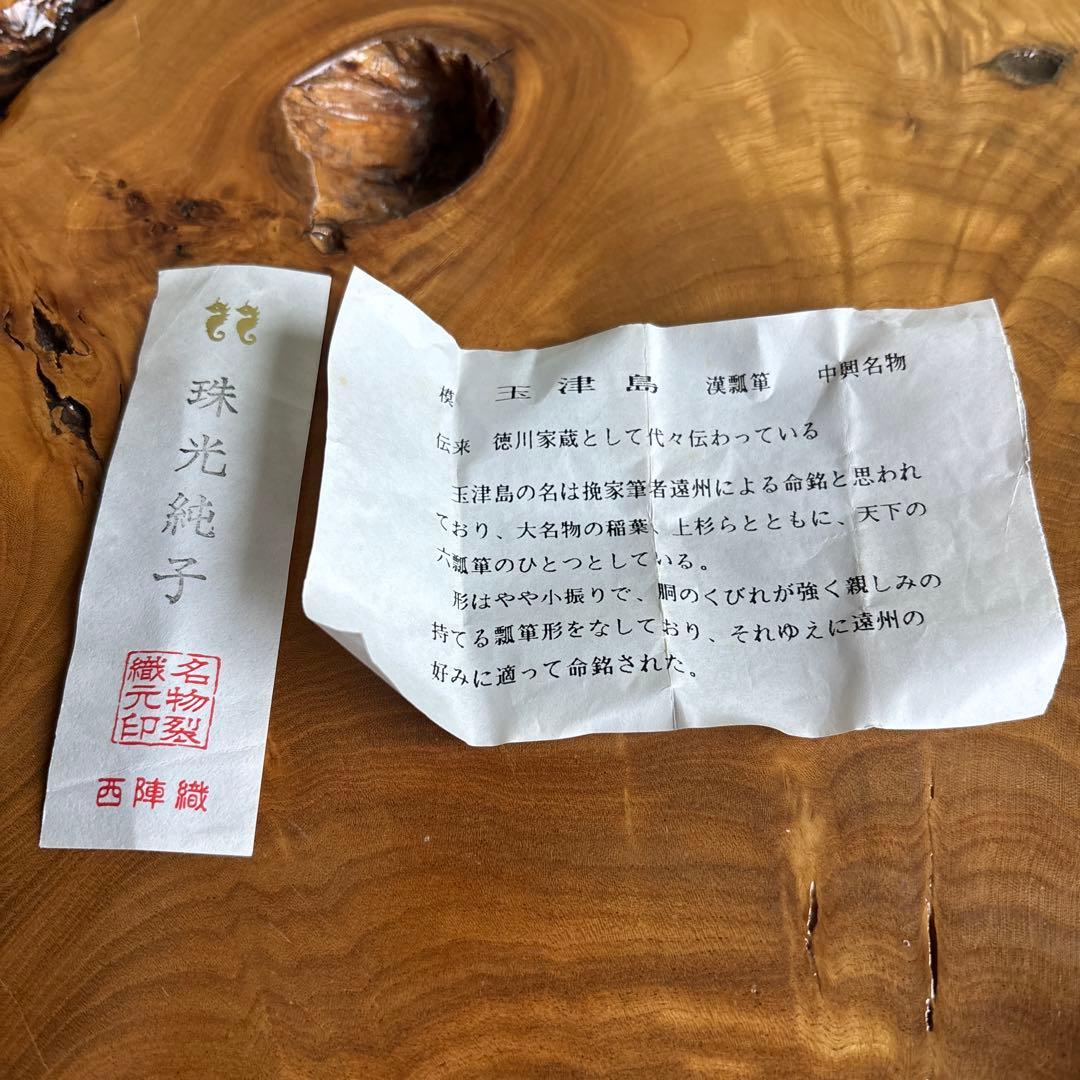 珠光純子
名物裂
織元印
西陣織
模 玉津島 漢瓢箪 中興名物
伝来 徳川家蔵として代々伝わっている
玉津島の名は挽家筆者遠州による命銘と思われ
ており、大名物の稲葉、上杉らとともに、天下の
六瓢箪のひとつとしている。
形はやや小振りで、胴のくびれが強く親しみの
持てる瓢箪形をなしており、それゆえに遠州の
好みに適って命銘された。